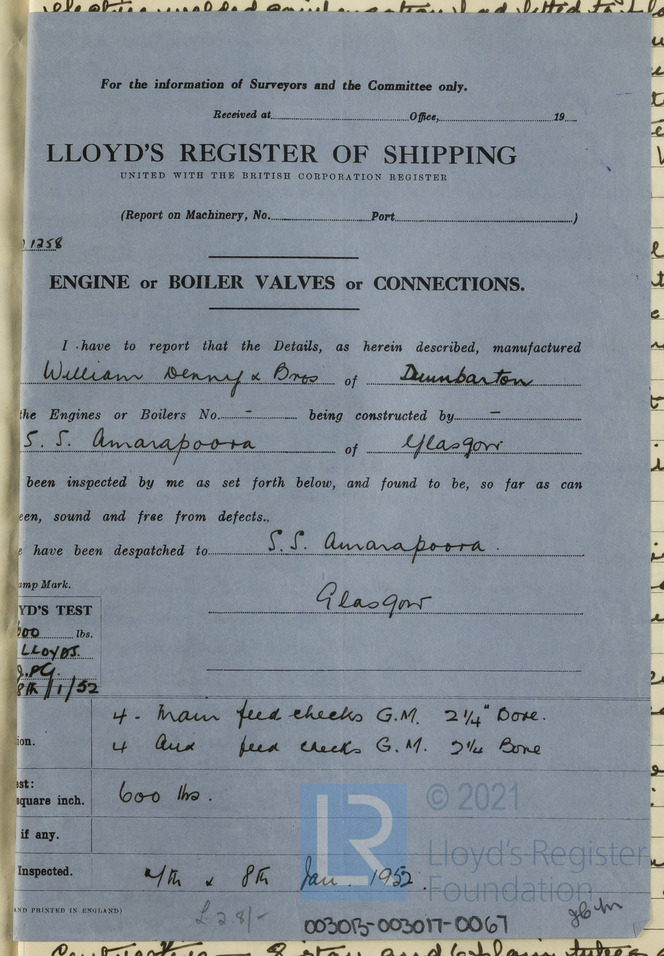 For the information of Surveyors and the Committee only.
Received at Office, 19
LLOYD'S REGISTER OF SHIPPING
UNITED WITH THE BRITISH CORPORATION REGISTER
(Report on Machinery, No. Port )
1258
ENGINE or BOILER VALVES or CONNECTIONS.
I have to report that the Details, as herein described, manufactured
William Denny & Bros of Dumbarton
the Engines or Boilers No. - being constructed by -
S.S. Amarapoora of Glasgow
been inspected by me as set forth below, and found to be, so far as can
een, sound and free from defects.
e have been despatched to S.S. Amarapoora.
Glasgow
amp Mark.
YD'S TEST
600 lbs.
LLOYDS.
8th/1/52
4 - Main feed checks G.M. 2 1/4" Bore.
ion. 4 Aux feed checks G.M. 2 1/4 Bore
est:
square inch. 600 lbs.
if any.
Inspected. 4th & 8th Jan. 1952.
AND PRINTED IN ENGLAND)
£28/-
003013-003017-0067
LR
© 2021
Lloyd's Register
Foundation